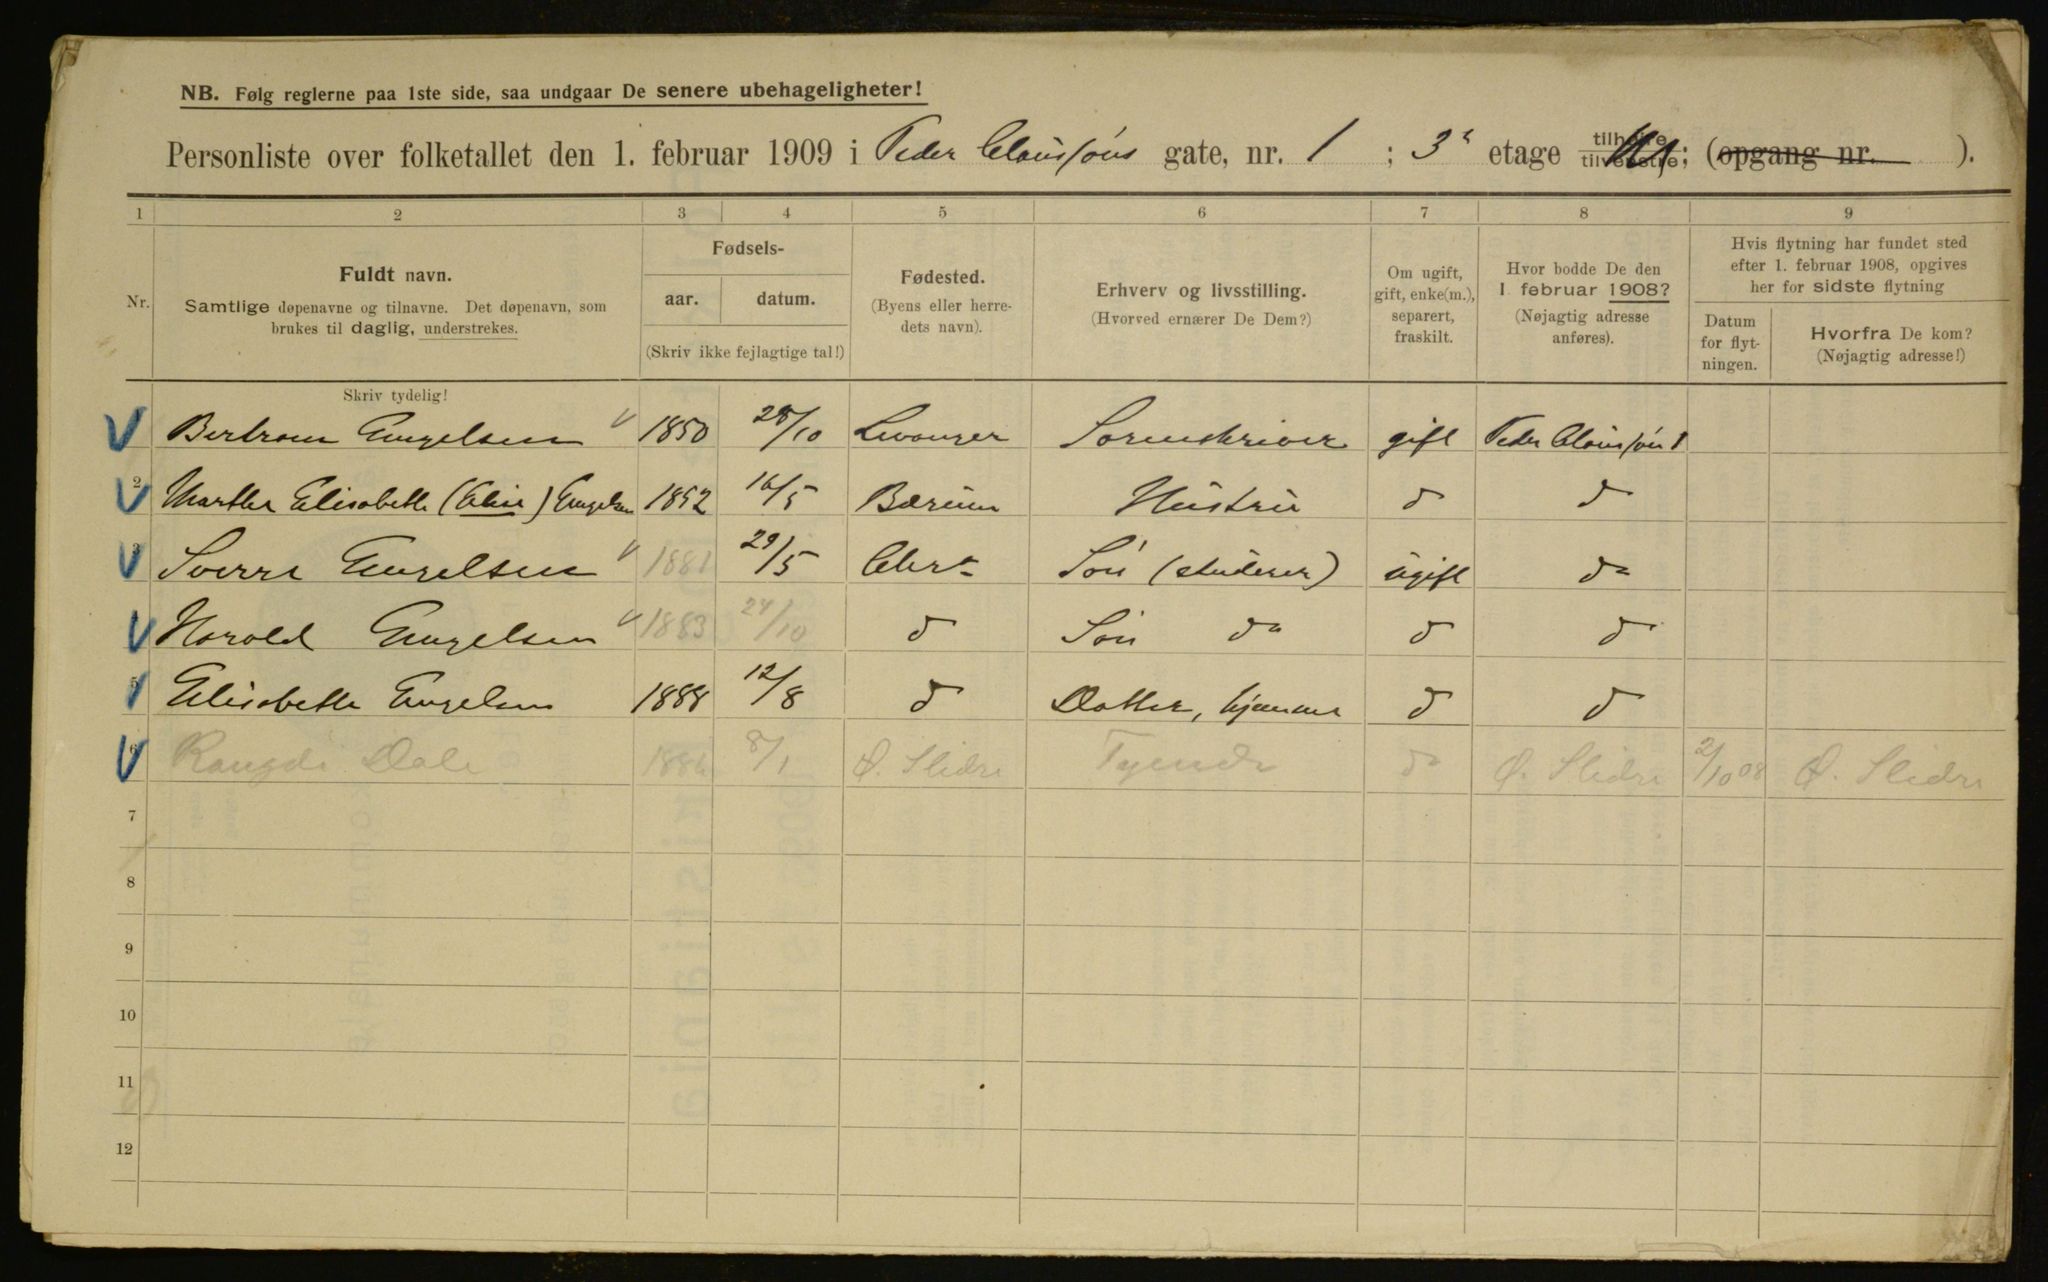 NB. Følg reglerne paa 1ste side, saa undgaar De senere ubehageligheter!
Personliste over folketallet den 1. februar 1909 i Peder Claussøns gate, nr. 1 ; 3 etage tilhøire tilvenstre; (opgang nr. ).
1 2 3 4 5 6 7 8 9
Nr.
Fuldt navn.
Samtlige døpenavne og tilnavne. Det døpenavn, som
brukes til daglig, understrekes.
Fødsels-
aar. datum.
(Skriv ikke fejlagtige tal!)
Fødested.
(Byens eller herre-
dets navn).
Erhverv og livsstilling.
(Hvorved ernærer De Dem?)
Om ugift,
gift, enke(m.),
separert,
fraskilt.
Hvor bodde De den
1 februar 1908?
(Nøjagtig adresse
anføres).
Hvis flytning har fundet sted
efter 1. februar 1908, opgives
her for sidste flytning
Datum
for flyt-
ningen.
Hvorfra De kom?
(Nøjagtig adresse!)
Skriv tydelig!
Bertram Engelsen 1850 28/10 Levanger Sorenskriver gift Peder Claussøn 1
2 Marthe Elisabeth (Elise) Engelsen 1852 16/5 Bærum Hustru do do
3 Sverre Engelsen 1881 29/5 Chra Søn (studerer) ugift do
Harald Engelsen 1883 24/10 do Søn do do do
5 Elisabeth Engelsen 1888 12/8 do Datter, hjemme do do
6 Rangdi Dale 1886 8/1 Ø. Slidre Tjener do Ø. Slidre 2/10 08 Ø. Slidre
7
8
9
10
11
12